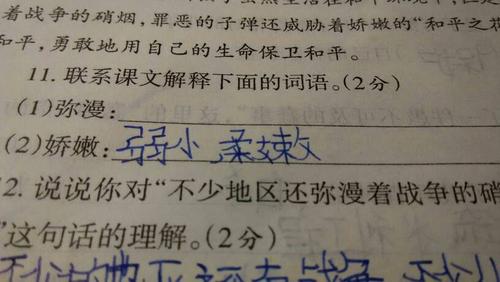 着战争的硝烟,罪恶的子弹还威胁着娇嫩的“和平之花
和平,勇敢地用自己的生命保卫和平。
11. 联系课文解释下面的词语。(2分)
(1)弥漫:
(2)娇嫩:弱小 柔嫩
2. 说说你对“不少地区还弥漫着战争的硝
”这句话的理解。(2分)